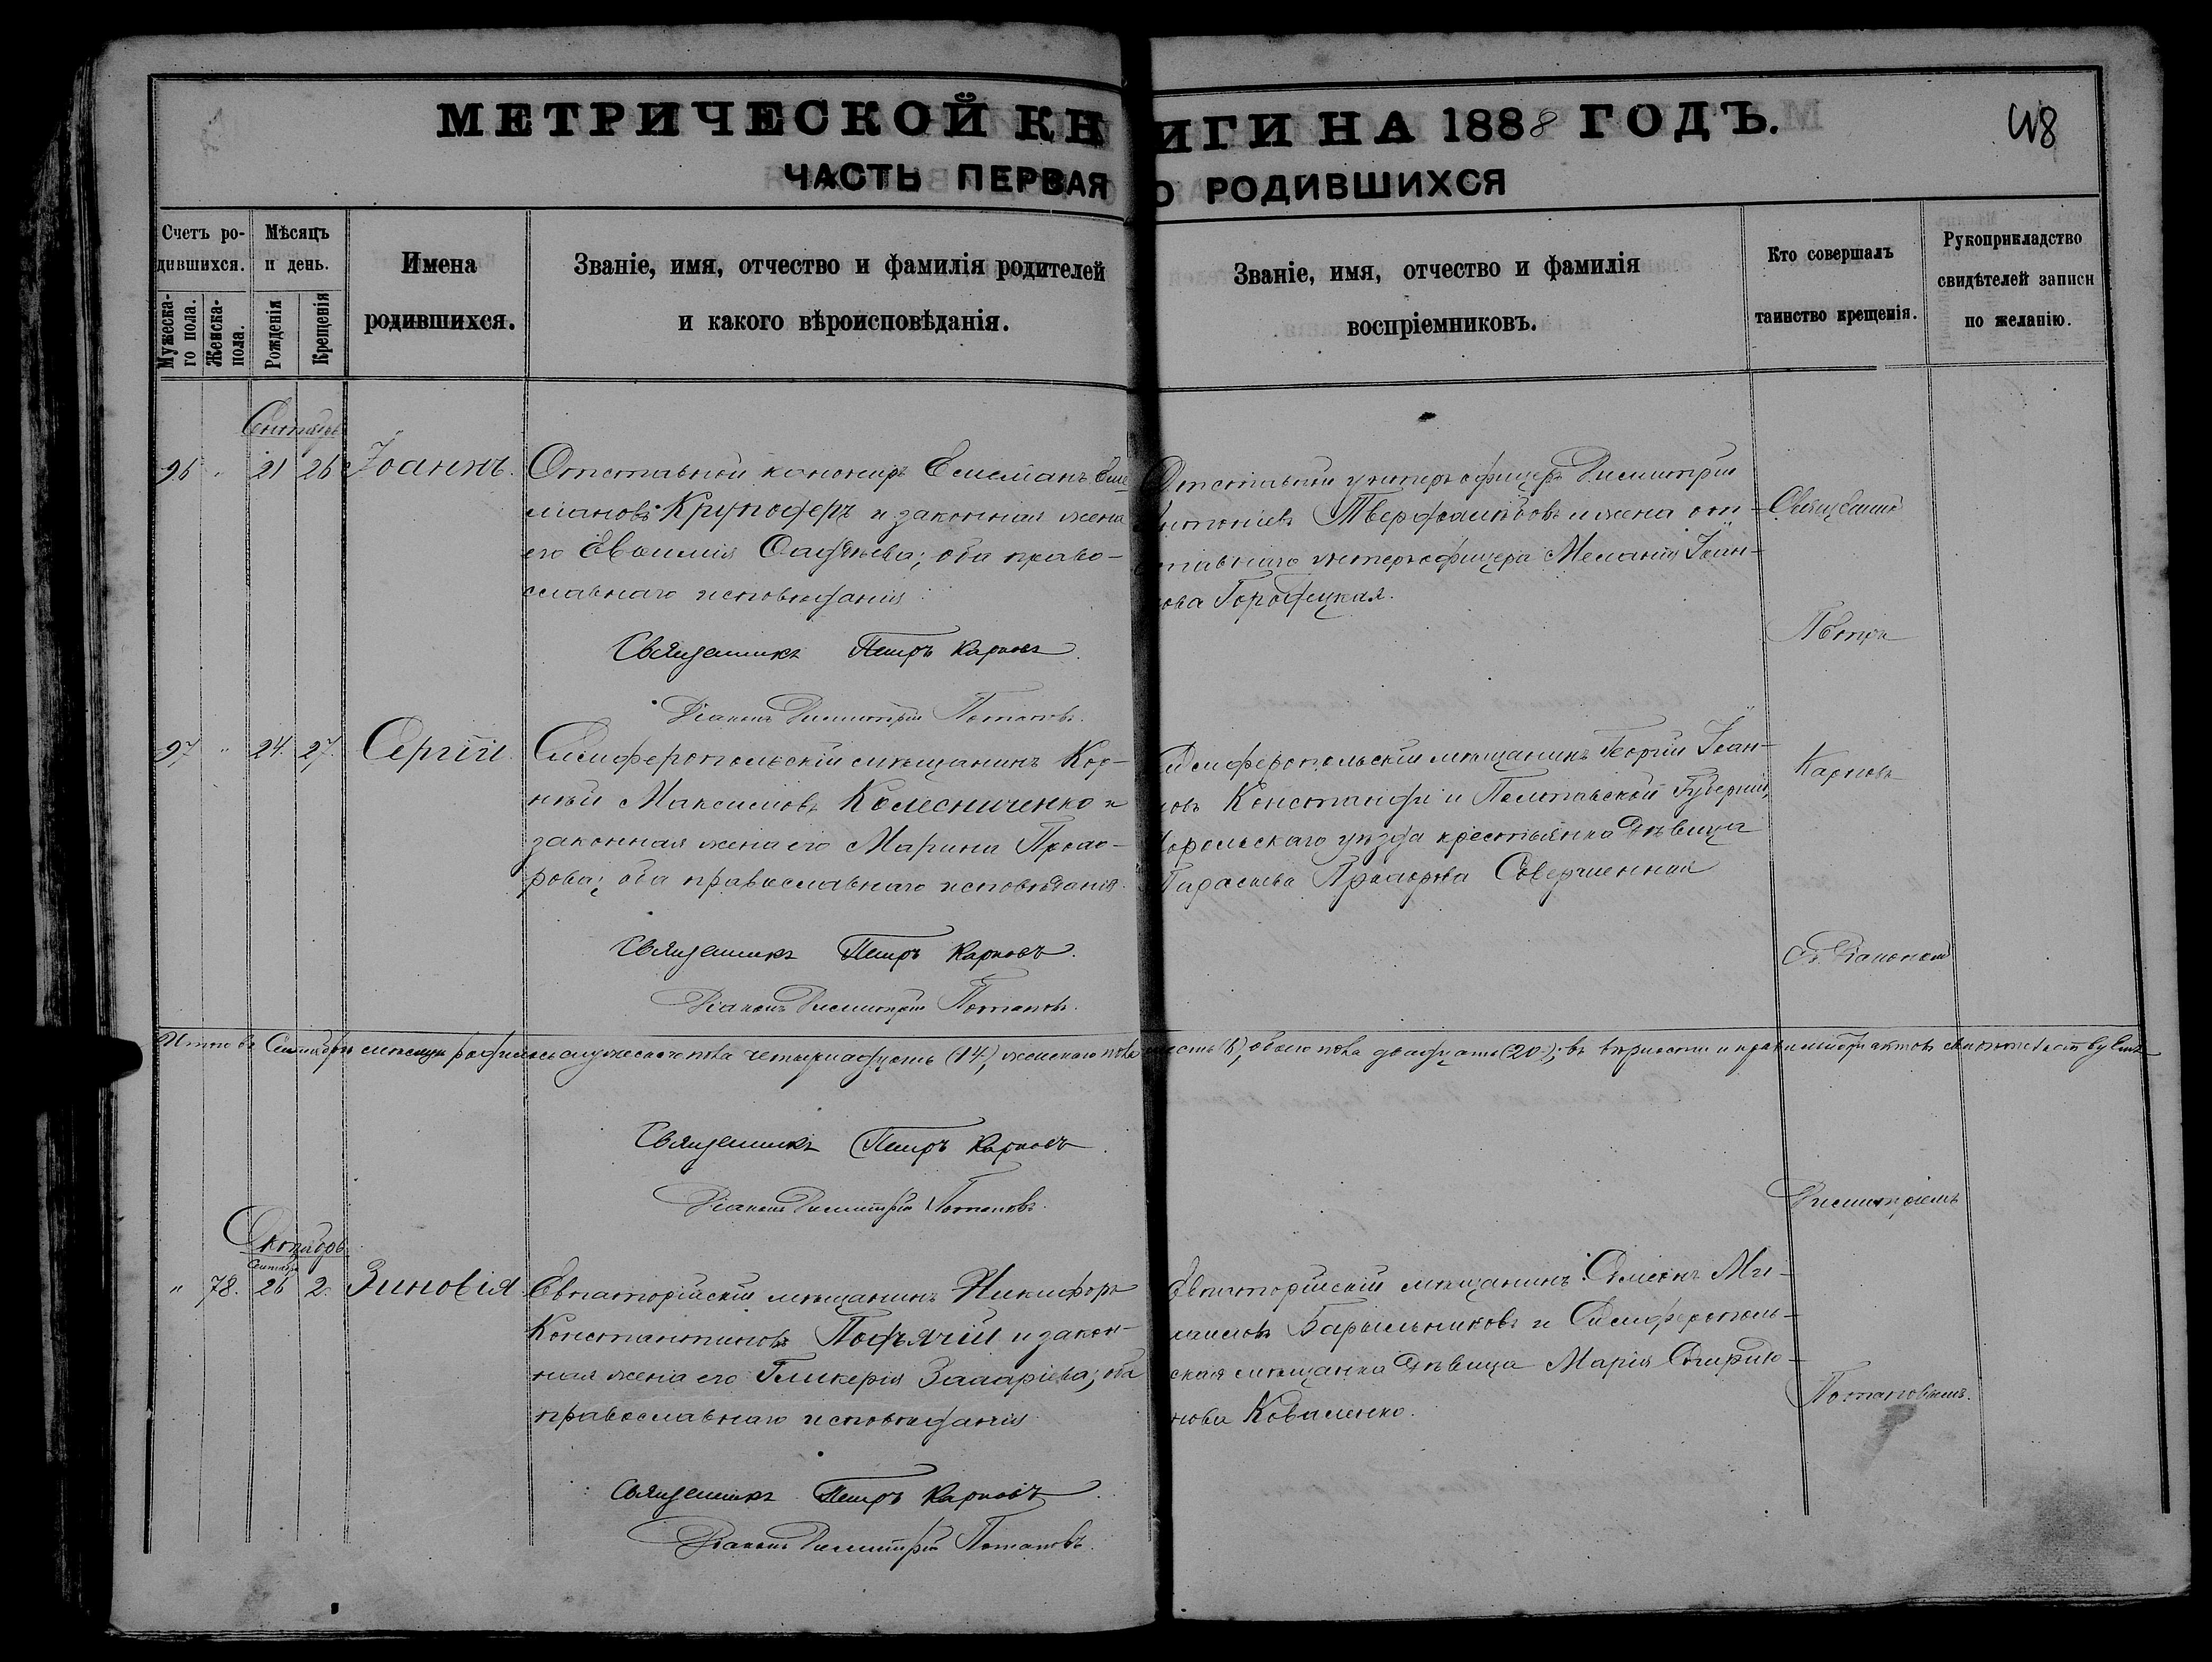 МЕТРИЧЕСКОЙ КНИГИ НА 1888 ГОДЪ.
48
ЧАСТЬ ПЕРВАЯ О РОДИВШИХСЯ
Счетъ родившихся.
Мужеска-го пола.
Женска-пола.
Мѣсяцъ и день.
Рожденія
Крещенія
Имена родившихся.
Званіе, имя, отчество и фамилія родителей
и какого вѣроисповѣданія.
Званіе, имя, отчество и фамилія
воспріемниковъ.
Кто совершалъ
таинство крещенія.
Рукоприкладство
свидѣтелей записи
по желанію.
Сентябрь
96 " 21 26 Іоаннъ.
Отставной канониръ
Круподеръ и законная жена
его Евѳимія оба право-
славнаго исповѣданія
Священникъ Петръ Карповъ.
Діаконъ Димитрій Потаповъ.
Отставной унтеръ-офицеръ Димитрій
и жена от-
ставнаго унтеръ-офицера Меланія Іоан-
нова Городецкая.
97 " 24. 27. Сергій.
Симферопольскій мѣщанинъ Кор-
нѣй Максимовъ Колесниченко и
законная жена его Марина Прохо-
рова; оба православнаго исповѣданія.
Священникъ Петръ Карповъ.
Діаконъ Димитрій Потаповъ.
Симферопольскій мѣщанинъ Георгій Іоан-
новъ Константи и Полтавской Губерніи,
Хорольскаго уѣзда крестьянка дѣвица
Параскева Прохорова Совершенная
Итого въ Сентябрѣ мѣсяцѣ родилось мужескаго пола четырнадцать (14), женскаго пола шесть (6), обоего пола двадцать (20); въ вѣрности
Священникъ Петръ Карповъ.
Діаконъ Димитрій Потаповъ.
Октябрь
Сентября
" 78. 26 2. Зиновія.
Евпаторійскій мѣщанинъ Никифоръ
Константиновъ Подъячій и закон-
ная жена его Гликерія Захаріева; оба
православнаго исповѣданія
Священникъ Петръ Карповъ.
Діаконъ Димитрій Потаповъ.
Евпаторійскій мѣщанинъ Симеонъ Ми-
хаиловъ Барыльниковъ и Симферополь-
ская мѣщанка дѣвица Марія Спиридо-
нова Коваленко.
Священникъ
Петръ
Карповъ
съ Діакономъ
Димитріемъ
Потаповымъ.